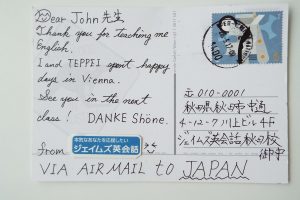 Dear John 先生
Thank you for teaching me
English.
I and TEPPEI spent happy
days in Vienna.
See you in the next
class! DANKE Shöne.
from
本気なあなたを応援したい
ジェイムズ英会話
VIA AIR MAIL to JAPAN
〒010-0001
秋田県秋田市中通
4-12-7 川上ビル4F
ジェイムズ英会話 秋田校
御中